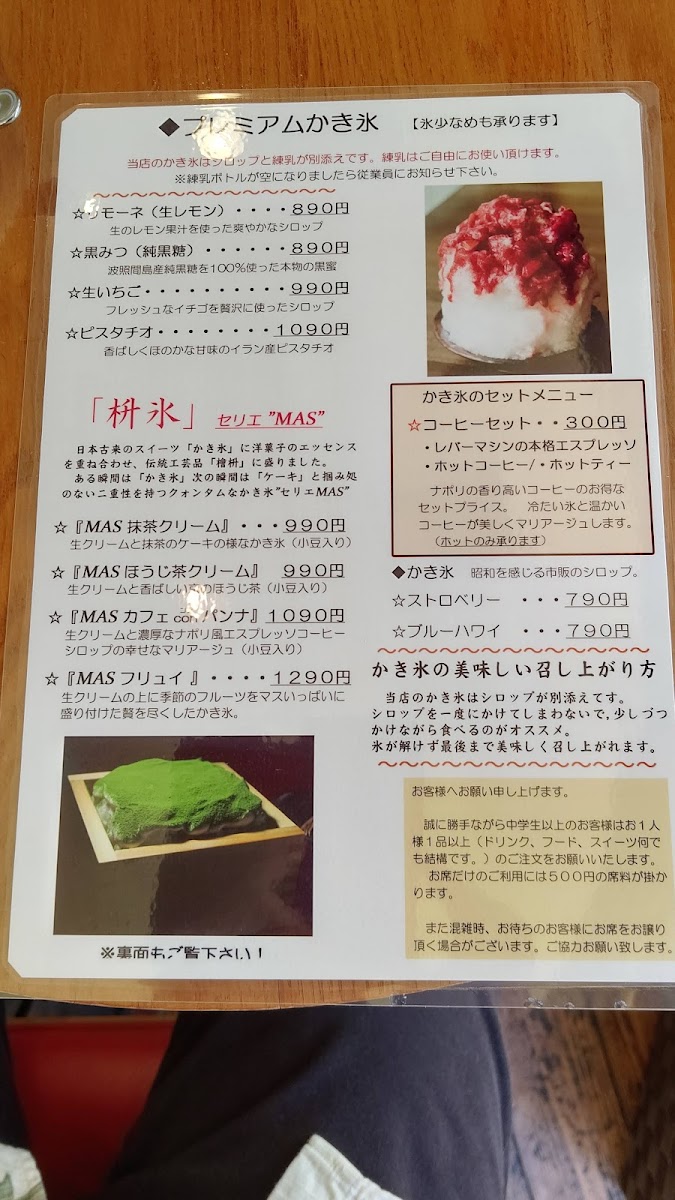 ◆プレミアムかき氷 【氷少なめも承ります】
当店のかき氷はシロップと練乳が別添えです。練乳はご自由にお使い頂けます。
※練乳ボトルが空になりましたら従業員にお知らせ下さい。
☆リモーネ（生レモン）・・・・890円
生のレモン果汁を使った爽やかなシロップ
☆黒みつ（純黒糖）・・・・・・890円
波照間島産純黒糖を100％使った本物の黒蜜
☆生いちご・・・・・・・・・・990円
フレッシュなイチゴを贅沢に使ったシロップ
☆ピスタチオ・・・・・・・・・1090円
香ばしくほのかな甘味のイラン産ピスタチオ
「枡氷」 セリエ ”MAS”
日本古来のスイーツ「かき氷」に洋菓子のエッセンス
を重ね合わせ、伝統工芸品「檜枡」に盛りました。
ある瞬間は「かき氷」次の瞬間は「ケーキ」と掴み所
のない二重性を持つクォンタムなかき氷”セリエMAS”
☆『MAS 抹茶クリーム』・・・990円
生クリームと抹茶のケーキの様なかき氷（小豆入り）
☆『MAS ほうじ茶クリーム』 990円
生クリームと香ばしい のほうじ茶（小豆入り）
☆『MAS カフェ con パンナ』1090円
生クリームと濃厚なナポリ風エスプレッソコーヒー
シロップの幸せなマリアージュ（小豆入り）
☆『MAS フリュイ 』・・・・1290円
生クリームの上に季節のフルーツをマスいっぱいに
盛り付けた贅を尽くしたかき氷。
※裏面もご覧下さい！
かき氷のセットメニュー
☆コーヒーセット・・300円
・レバーマシンの本格エスプレッソ
・ホットコーヒー/・ホットティー
ナポリの香り高いコーヒーのお得な
セットプライス。 冷たい氷と温かい
コーヒーが美しくマリアージュします。
（ホットのみ承ります）
◆かき氷 昭和を感じる市販のシロップ。
☆ストロベリー ・・・790円
☆ブルーハワイ ・・・790円
かき氷の美味しい召し上がり方
当店のかき氷はシロップが別添えです。
シロップを一度にかけてしまわないで,少しづつ
かけながら食べるのがオススメ。
氷が解けず最後まで美味しく召し上がれます。
お客様へお願い申し上げます。
誠に勝手ながら中学生以上のお客様はお１人
様１品以上（ドリンク、フード、スイーツ何で
も結構です。）のご注文をお願いいたします。
お席だけのご利用には５００円の席料が掛か
ります。
また混雑時、お待ちのお客様にお席をお譲り
頂く場合がございます。ご協力お願い致します。